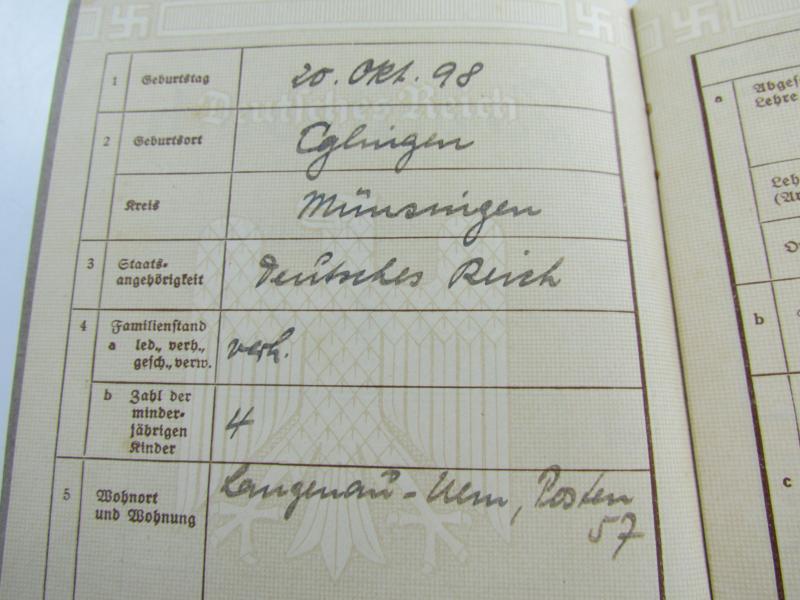 Deutsches Reich
1 Geburtstag 20. Okt. 98
2 Geburtsort Eglingen
Kreis Münsingen
3 Staats-
angehörigkeit Deutsches Reich
4 Familienstand
a led., verh., verh.
gesch., verw.
b Zahl der
minder-
jährigen 4
Kinder
5 Wohnort Langenau - Ulm, Posten
und Wohnung 57
a Abges
Lehre
Leh
(Ar
O
b
c